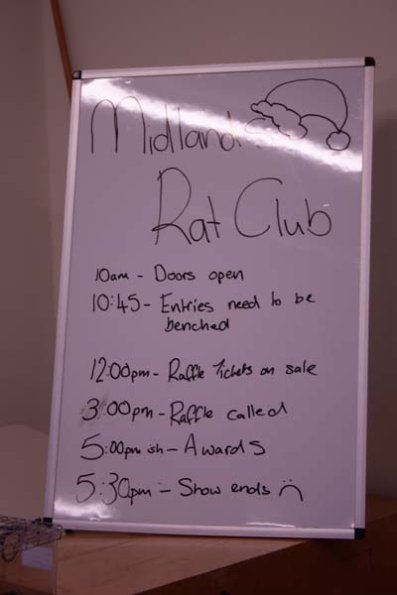 Midlands
Rat Club
10am - Doors open
10:45 - Entries need to be
benched
12:00pm - Raffle Tickets on sale
3:00pm - Raffle called
5:00pm ish - Awards
5:30pm - Show ends :(